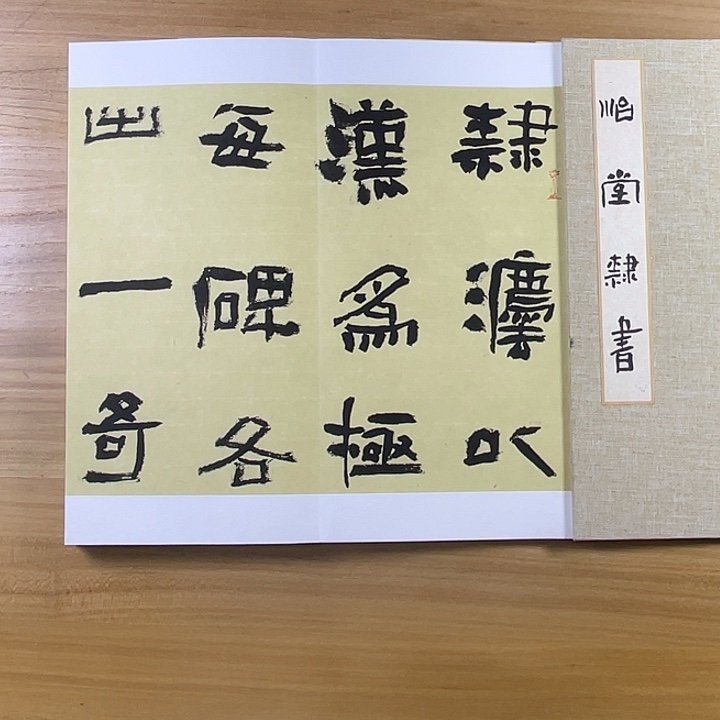 堂隸書
隸灋以
漢爲極
每碑各
出一奇